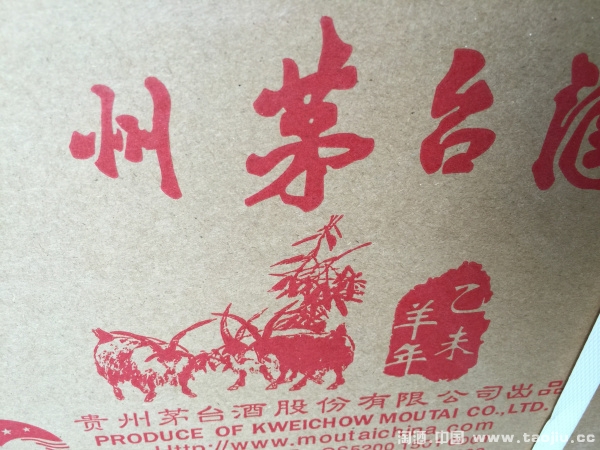 州茅台酒
乙未
羊年
贵州茅台酒股份有限公司出品
PRODUCE OF KWEICHOW MOUTAI CO.,LTD.
Http://www.moutaichina.com
淘酒.中国 www.taojiu.cc